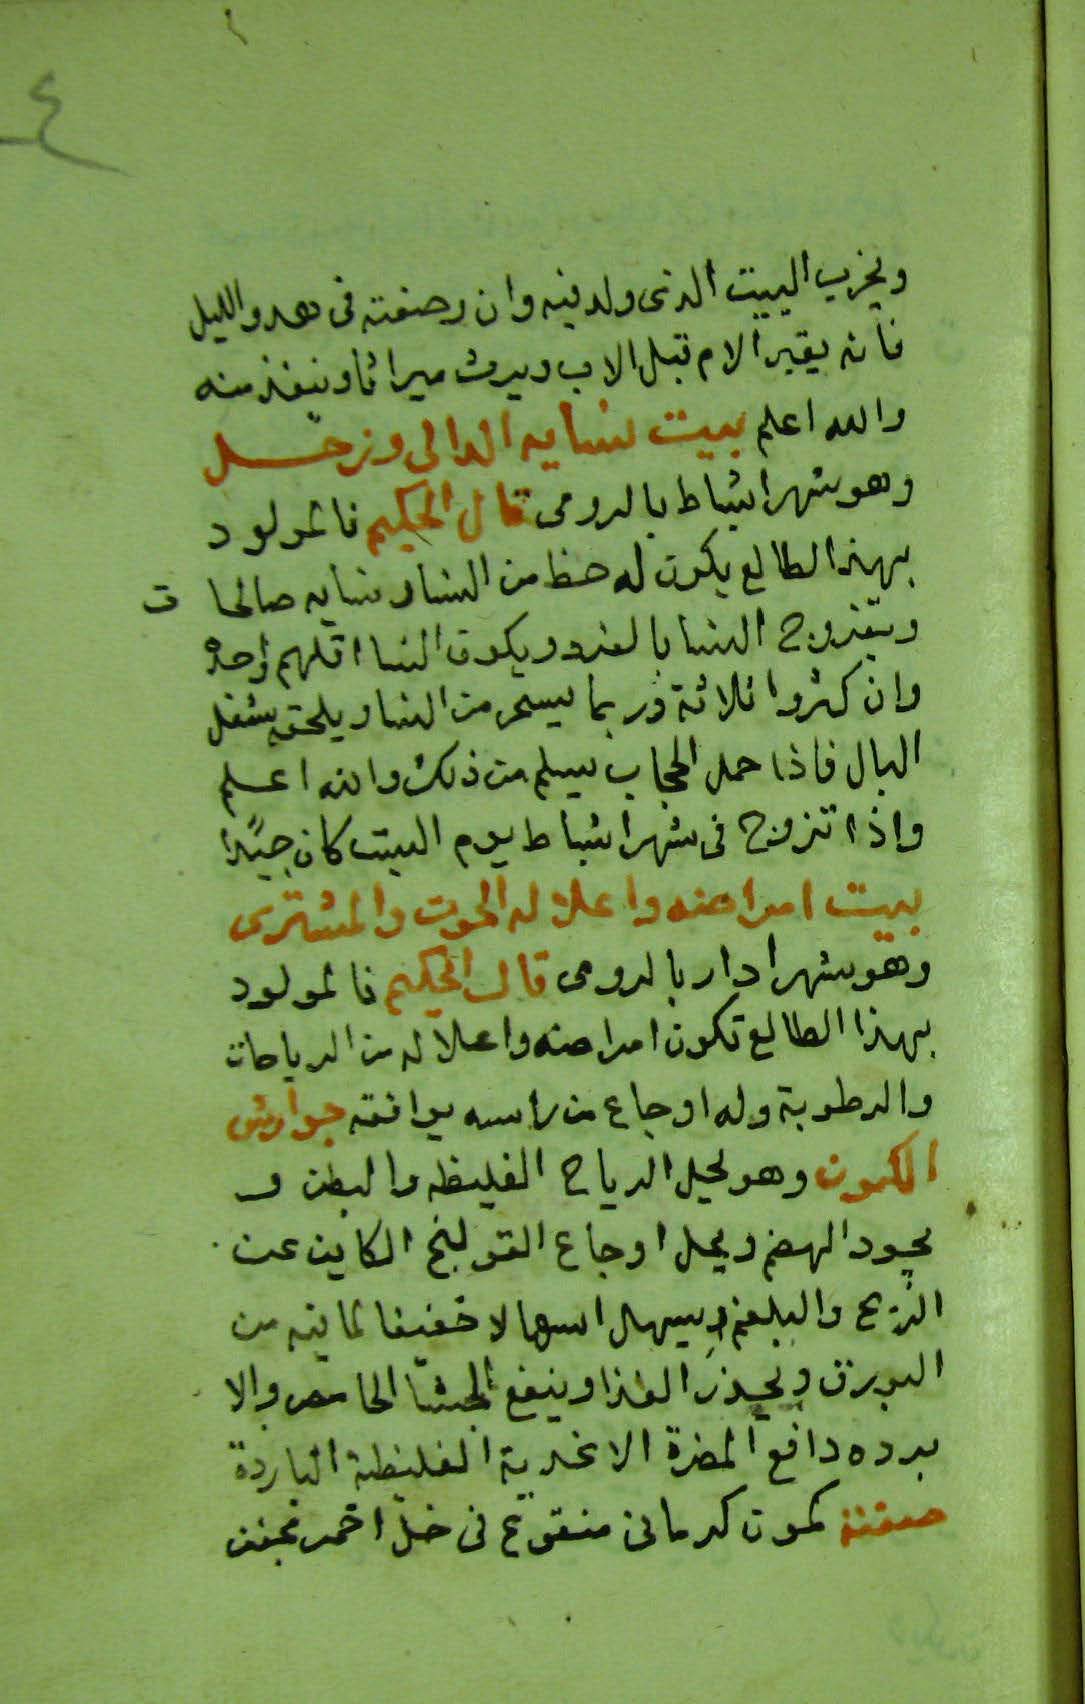 ٤
ويخرب البيت الذى ولد فيه وان وضعته فى هدو الليل
فانه يقبر الام قبل الاب ويرث ميراثا وينفذ منه
والله اعلم بيت نسايه الدالى وزحل
وهو شهر اشباط بالرومى قال الحكيم فالمولود
بهذا الطالع يكون له حظ من النسا ونسايه صالحات
ويتزوج النسا بالفرد ويكون النسا اقلهم واحده
وان كثروا ثلاثة وربما يسحر من النسا ويلحقه شغل
البال فاذا حمل الحجاب يسلم من ذلك والله اعلم
واذا تزوج فى شهر اشباط يوم السبت كان جيدا
بيت امراضه واعلاله الحوت والمشترى
وهو شهر ادار بالرومى قال الحكيم فالمولود
بهذا الطالع تكون امراضه واعلاله من الرياحات
والرطوبة وله اوجاع من راسه يوافقه جوارش
الكمون وهو يحيل الرياح الغليظه والبطن و
يجود الهضم ويحل اوجاع القولنج الكاين عن
الريح والبلغم ويسهل اسهالا خفيفا لما فيه من
البورق ويحدر الغذا وينفع الجشا الحامض والا
برده دافع المضرة الاغدية الغليظة الباردة
صفته كمون كرمانى منقوع فى خل اخمر مجفف